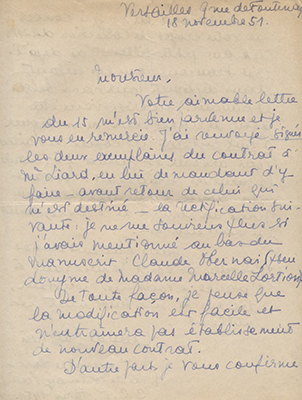 Versailles 9 rue de Fontenay
18 novembre 51.
Monsieur,
Votre aimable lettre
du 15 m'est bien parvenue et je
vous en remercie. J'ai renvoyé signés
les deux exemplaires du contrat à
en lui demandant d'y
faire – avant retour de celui qui
m'est destiné – la rectification sui-
vante : je ne me souviens plus si
j'avais mentionné au bas du
manuscrit – Claude
donyme de Madame Marcelle
De toute façon, je pense que
la modification est facile et
n'entraînera pas établissement
de nouveau contrat.
D'autre part, je vous confirme